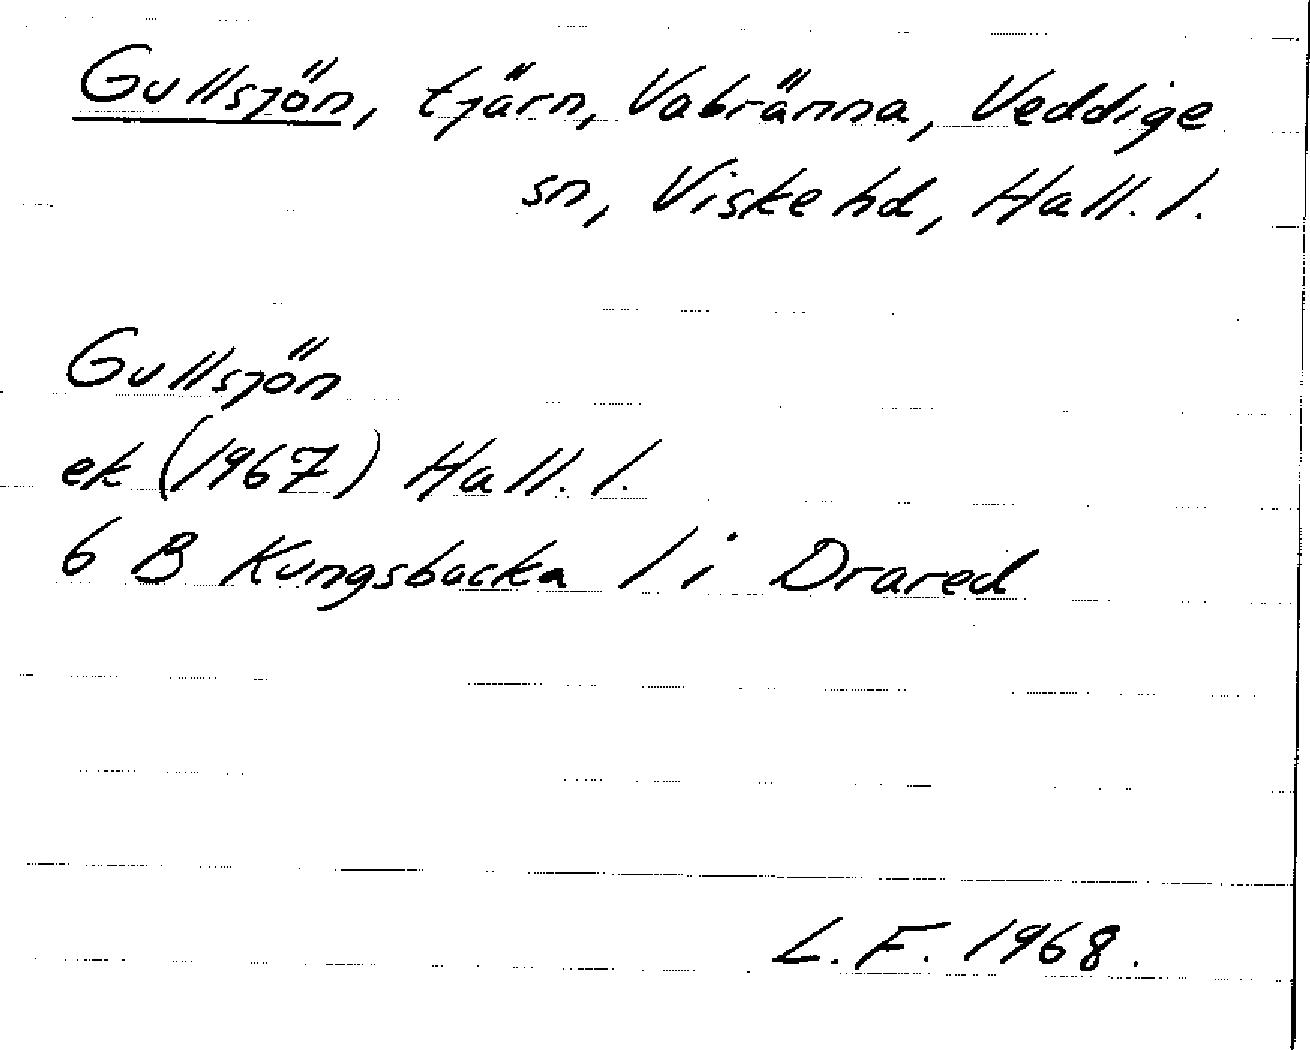 Gullsjön, tjärn, Vabränna, Veddige
sn, Viske hd, Hall. l.
Gullsjön
ek (1967) Hall. l.
6 B Kungsbacka l i Drared
L. F. 1968.